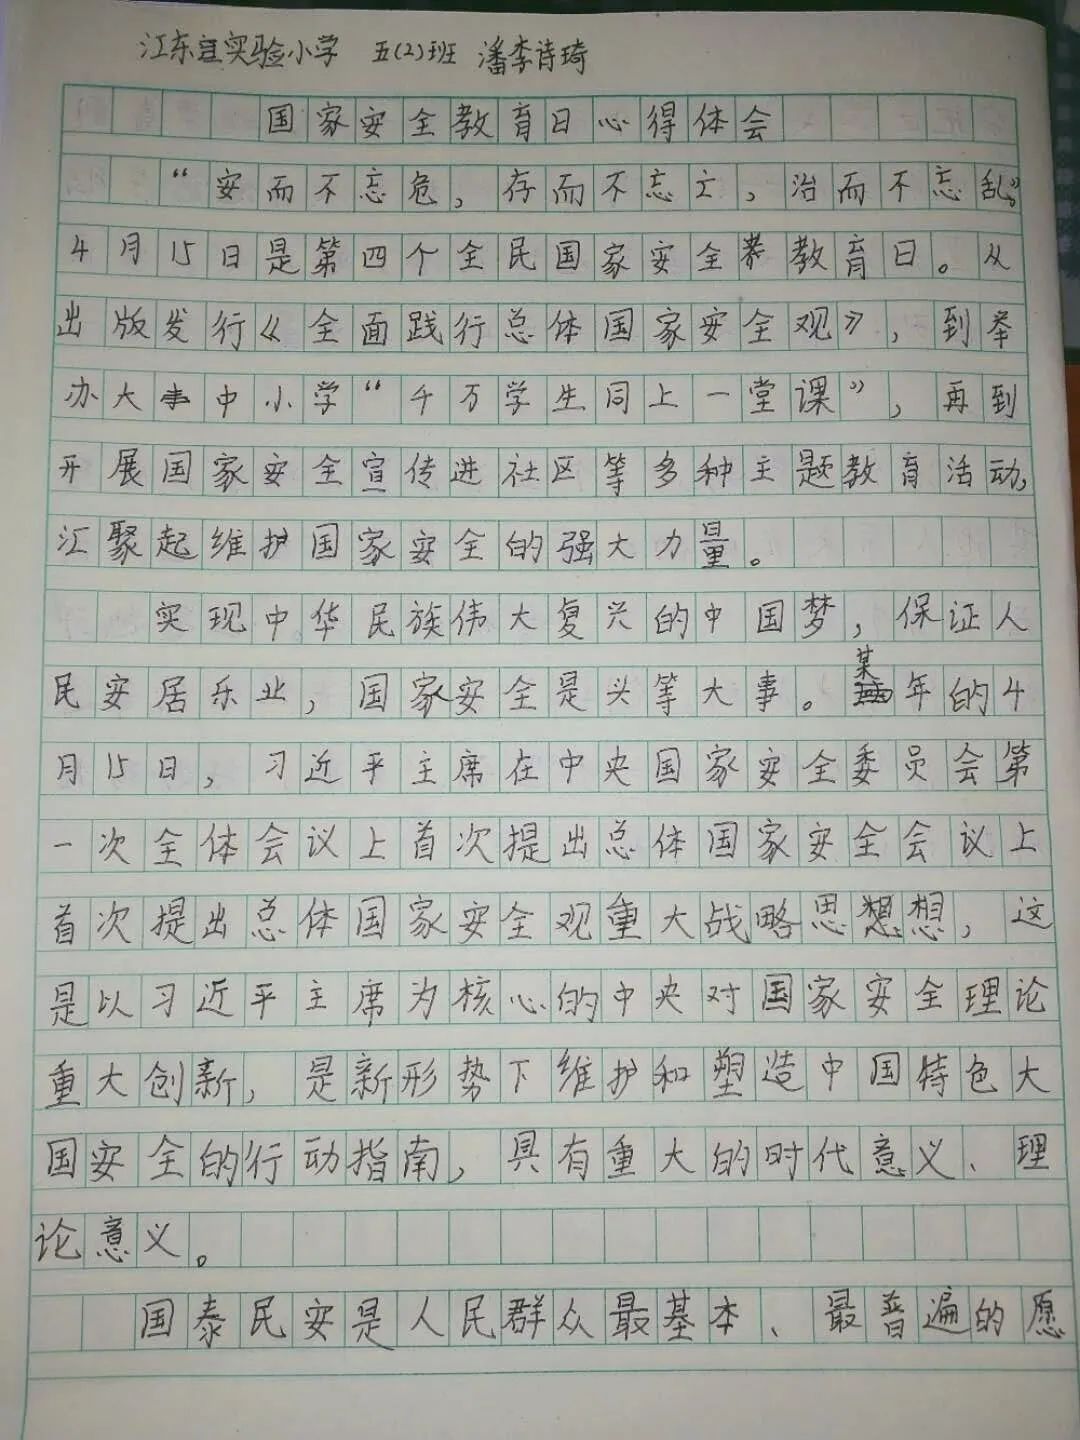 江东宜实验小学 五(2)班 潘李诗琦
国家安全教育日心得体会
“安而不忘危，存而不忘亡，治而不忘乱”。
4月15日是第四个全民国家安全教育日。从
出版发行《全面践行总体国家安全观》，到举
办大中小学“千万学生同上一堂课”，再到
开展国家安全宣传进社区等多种主题教育活动，
汇聚起维护国家安全的强大力量。
实现中华民族伟大复兴的中国梦，保证人
民安居乐业，国家安全是头等大事。某年的4
月15日，习近平主席在中央国家安全委员会第
一次全体会议上首次提出总体国家安全会议上
首次提出总体国家安全观重大战略思想想，这
是以习近平主席为核心的中央对国家安全理论
重大创新，是新形势下维护和塑造中国特色大
国安全的行动指南，具有重大的时代意义、理
论意义。
国泰民安是人民群众最基本、最普遍的愿